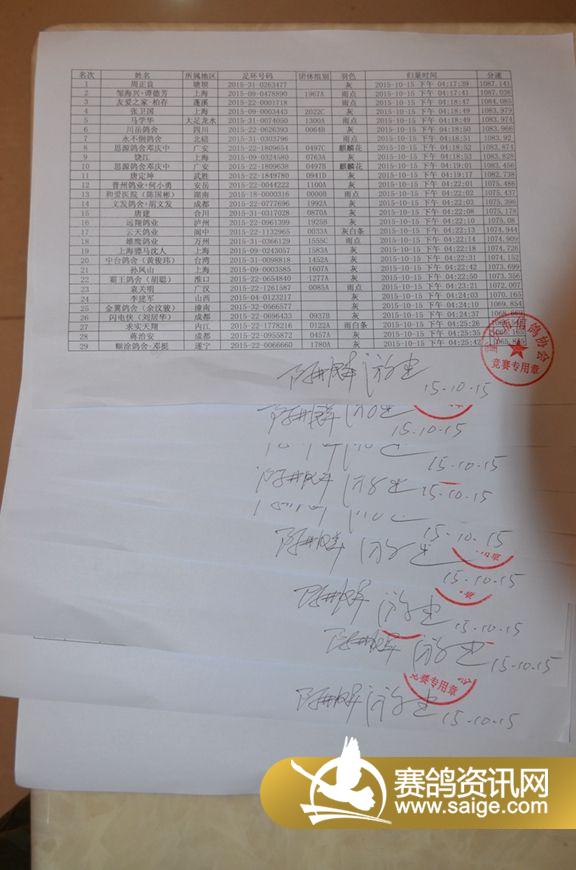 名次 姓名 所属地区 足环号码 团体组别 羽色 归巢时间 分速
1 周正良 塘坝 2015-31-0263477 灰 2015-10-15 下午 04:17:39 1087.141
2 邹海兴·谭德芳 上海 2015-09-0478890 1967A 雨点 2015-10-15 下午 04:17:43 1087.036
3 友爱之家·柏存 蓬溪 2015-22-0001718 雨点 2015-10-15 下午 04:18:47 1084.085
4 张卫国 上海 2015-09-0003443 2022C 灰 2015-10-15 下午 04:18:49 1083.979
5 马学华 大足龙水 2015-31-0074050 1300A 雨点 2015-10-15 下午 04:18:49 1083.974
6 川岳鸽舍 四川 2015-22-0626393 0064B 灰 2015-10-15 下午 04:18:50 1083.966
7 永不倒鸽舍 北碚 2015-31-0303796 雨点 2015-10-15 下午 04:18:51 1083.92
8 思源鸽舍邓庆中 广安 2015-22-1809654 0497C 麒麟花 2015-10-15 下午 04:18:52 1083.874
9 饶江 上海 2015-09-0324580 0763A 灰 2015-10-15 下午 04:18:53 1083.828
10 思源鸽舍邓庆中 广安 2015-22-1809638 0497B 麒麟花 2015-10-15 下午 04:19:01 1083.456
11 唐定坤 武胜 2015-22-1849780 0941D 灰 2015-10-15 下午 04:19:17 1082.738
12 普州鸽业·何小勇 安岳 2015-22-0044222 1100A 灰 2015-10-15 下午 04:22:01 1075.486
13 和爱医院（陈国彬） 湖南 2015-18-0000316 0000B 雨点 2015-10-15 下午 04:22:01 1075.437
14 文发鸽舍·胡文发 成都 2015-22-0277696 1992A 灰 2015-10-15 下午 04:22:03 1075.396
15 唐建 合川 2015-31-0317028 0870A 灰 2015-10-15 下午 04:22:08 1075.179
16 远翔鸽业 泸州 2015-22-0961399 1925B 灰 2015-10-15 下午 04:22:10 1075.08
17 云天鸽业 阆中 2015-22-1132965 0033A 灰白条 2015-10-15 下午 04:22:13 1074.944
18 雄鹰鸽业 万州 2015-31-0366129 1555C 雨点 2015-10-15 下午 04:22:14 1074.909
19 上海骝马沈人 上海 2015-09-0243057 1583A 灰 2015-10-15 下午 04:22:18 1074.726
20 宁台鸽舍（黄俊玮） 台湾 2015-31-0098818 1452A 灰 2015-10-15 下午 04:22:31 1074.152
21 孙凤山 上海 2015-09-0003585 1607A 灰 2015-10-15 下午 04:22:42 1073.699
22 霸王鸽舍（胡聪） 淮口 2015-22-0654840 1277A 灰 2015-10-15 下午 04:22:50 1073.356
23 袁关明 广汉 2015-22-1261587 0085A 雨点 2015-10-15 下午 04:23:21 1072.007
24 李建军 山西 2015-04-0123217 灰 2015-10-15 下午 04:24:03 1070.165
25 金翼鸽舍（余汶骏） 潼南 2015-32-0066577 灰 2015-10-15 下午 04:24:10 1069.854
26 闪电侠（刘居华） 成都 2015-22-0696433 0937B 灰 2015-10-15 下午 04:24:37
27 求实天翔 内江 2015-22-1778216 0122A 雨白条 2015-10-15 下午 04:25:26
28 蒋治安 成都 2015-22-0955872 0457A 灰 2015-10-15 下午 04:25:35
29 顺涂鸽舍·邓挺 遂宁 2015-22-0066660 1780A 灰 2015-10-15 下午
信鸽协会
竞赛专用章
15.10.15
15.10.15
15.10.15
15.10.15
15.10.15
15.10.15
15.10.15
15.10.15
竞赛专用章
15.10.15
赛鸽资讯网
www.saige.com